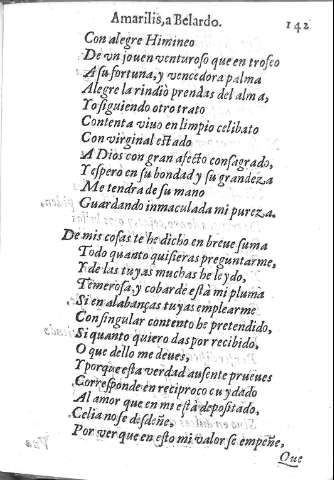 Amarilis, a Belardo. 142
Con alegre Himineo
De vn jouen venturoso que en trofeo
A su fortuna, y vencedora palma
Alegre la rindiò prendas del alma,
Yo siguiendo otro trato
Contenta viuo en limpio celibato
Con virginal estado
A Dios con gran afecto consagrado,
Y espero en su bondad y su grandeza
Me tendra de su mano
Guardando inmaculada mi pureza.
De mis cosas te he dicho en breue suma
Todo quanto quisieras preguntarme,
Y de las tuyas muchas he leydo,
Temerosa, y cobarde està mi pluma
Si en alabanças tuyas emplearme
Con singular contento he pretendido,
Si quanto quiero das por recibido,
O que dello me deues,
Y porque esta verdad ausente prueues
Corresponde en reciproco cuydado
Al amor que en mi està depositado,
Celia no se desdeñe,
Por ver que en esto mi valor se empeñe,
Que